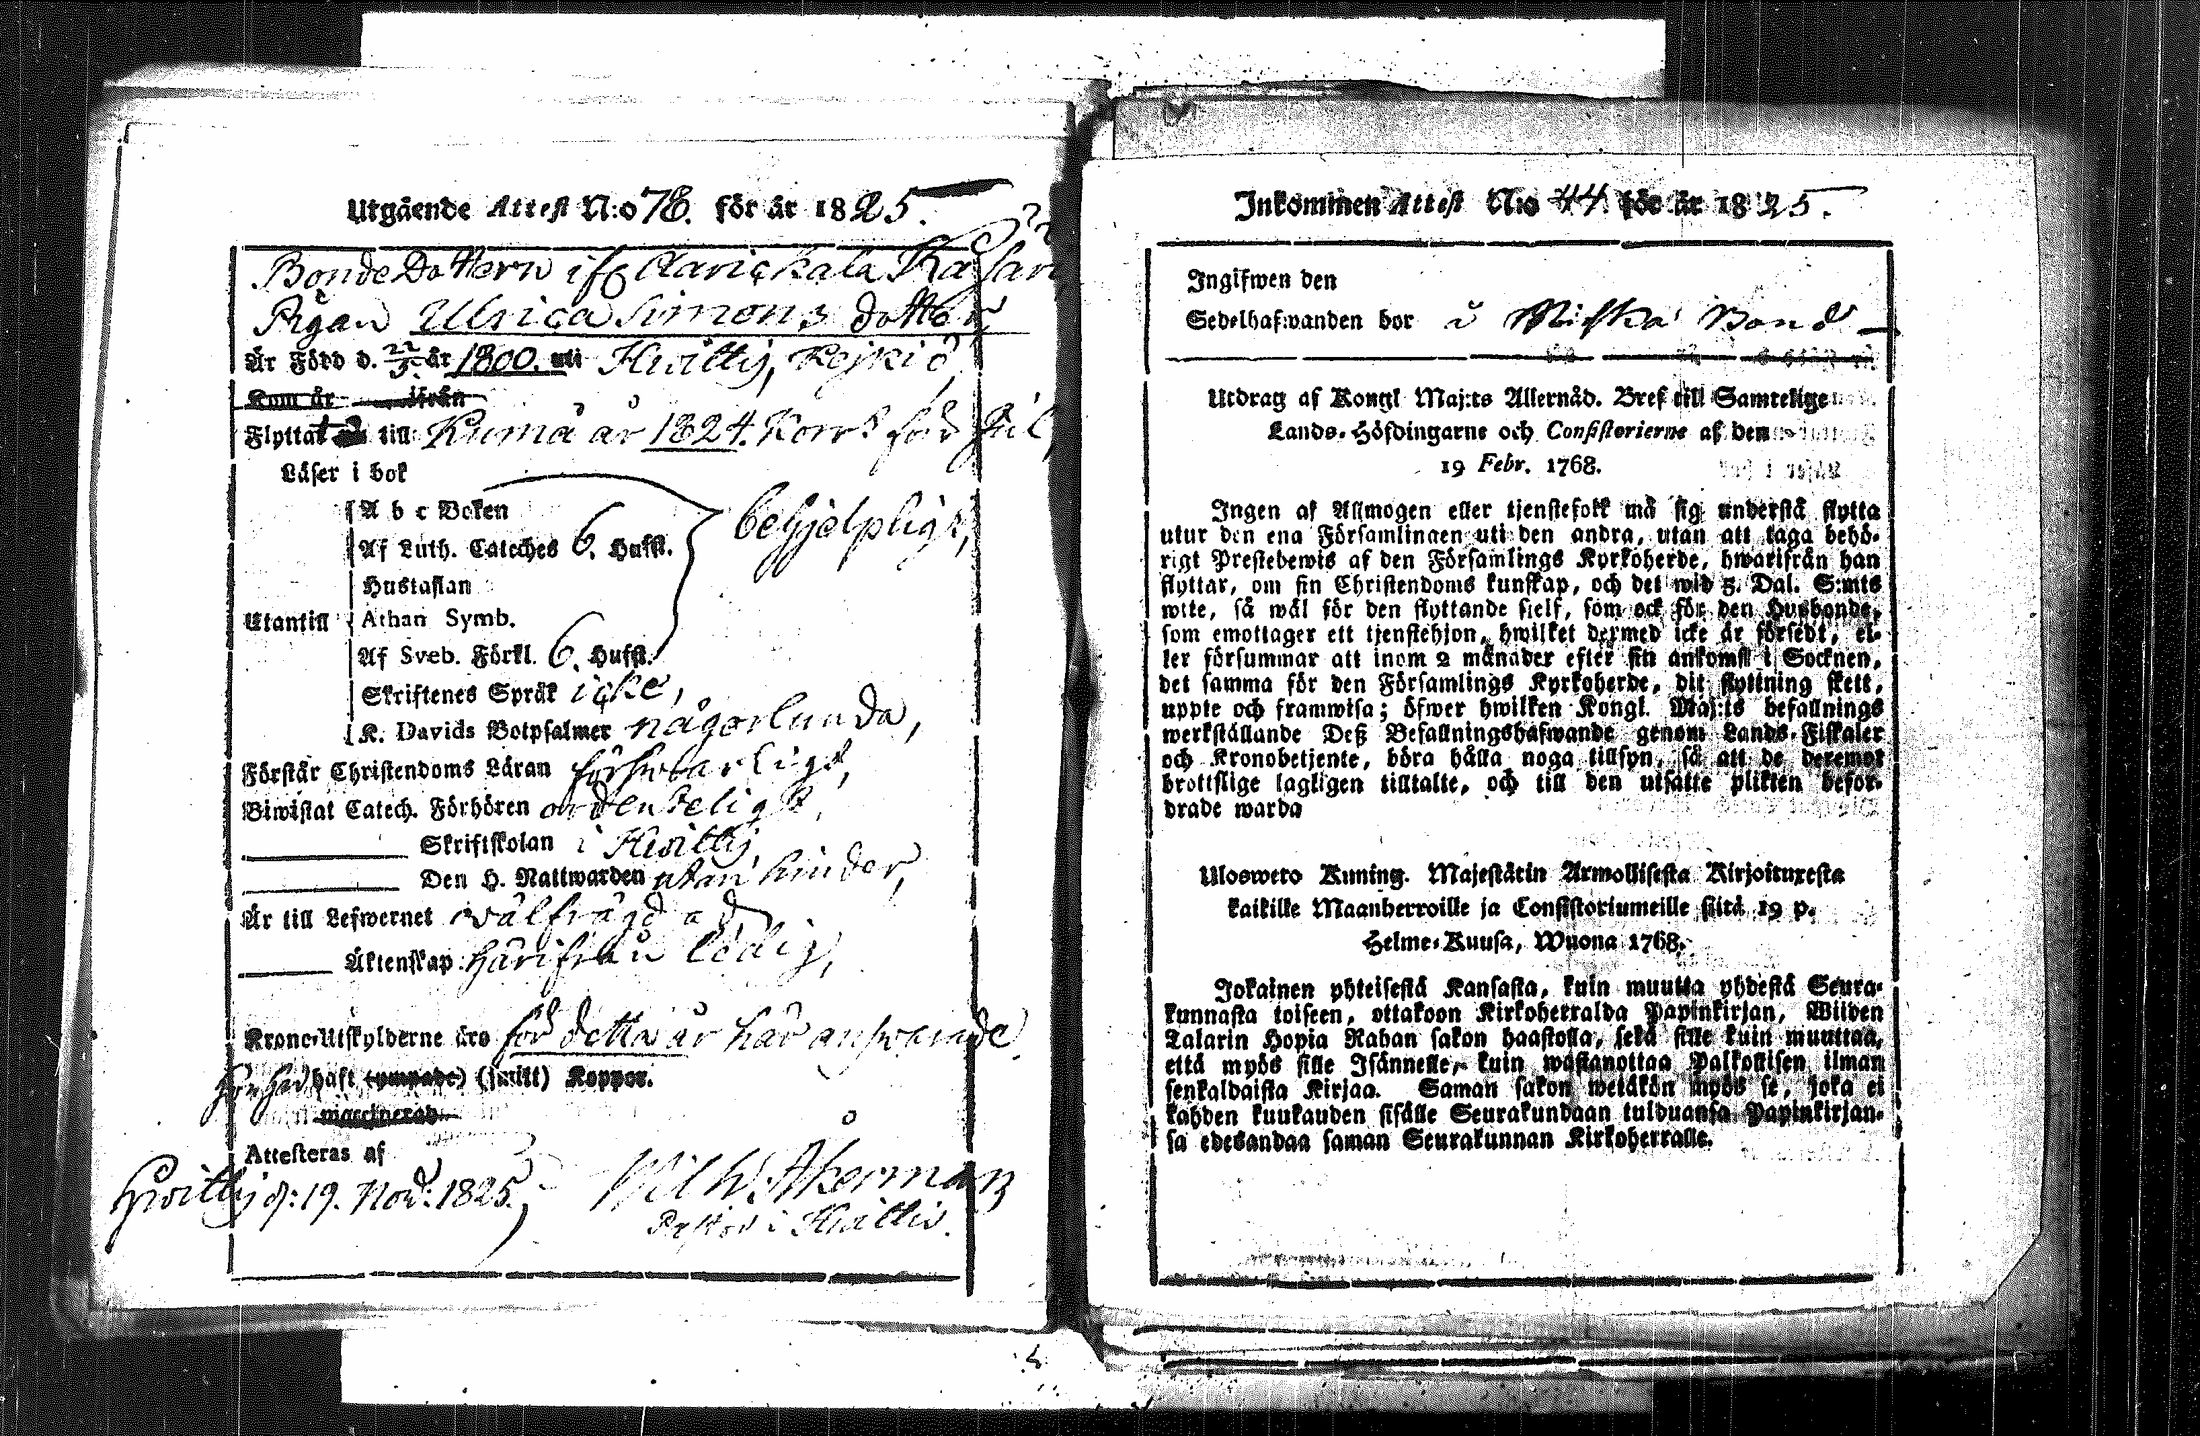 Utgående Attest N:o 78. för år 1825.
BondeDottern ifr
Pigan Ulrica Simons dotter,
Är Född d. 22/3. år 1800. uti Hvittis, Kejkiö
Kom år ifrån
Flyttat till Kumå år 1824.
Läser i bok
A b c Boken
Af Luth. Cateches 6. Hufst. behjelpligt,
Hustaflan
Utantill Athan Symb.
Af Sveb. Förkl. 6. Hufst.
Skriftenes Språk icke,
K. Davids Botpsalmer någorlunda,
Förstår Christendoms Läran försvarligt,
Biwistat Catech. Förhören ordenteligt,
Skriftskolan i Hvittis
Den H. Nattwarden utan hinder,
Är till Lefwernet välfrägdad
Äktenskap härifrån ledig,
Krono-Utskylderne äro för detta år här answarade
haft (ympade) (smitt) Koppor.
maccinerad
Attesteras af
Hvittis d: 19. Nov: 1825. Wilh. Åkerman
Pastor i Hvittis.
Inkommen Attest N:o 44. för år 1825.
Ingifwen den
Sedelhafwanden bor Bond
Utdrag af Kongl Maj:ts Allernåd. Bref till Samtelige
Lands-Höfdingarne och Consistorierne af den
19 Febr. 1768.
Ingen af Allmogen eller tjenstefolk må sig understå flytta
utur den ena Församlingen uti den andra, utan att taga behö-
rigt Prestebewis af den Församlings Kyrkoherde, hwarifrån han
flyttar, om sin Christendoms kunskap, och det wid 5. Dal. S:mts
wite, så wäl för den flyttande sielf, som ock för den Husbonde,
som emottager ett tjenstehjon, hwilket dermed icke är försedt, el-
ler försummar att inom 2 månader efter sin ankomst i Socknen,
det samma för den Församlings Kyrkoherde, dit flyttning skett,
uppte och framwisa; öfwer hwilken Kongl. Maj:ts befallnings
werkställande Deß Befallningshafwande genom Lands-Fiskaler
och Kronobetjente, böra hålla noga tillsyn, så att de deremot
brottslige lagligen tilltalte, och till den utsatte plikten befor-
drade warda
Ulosweto Kuning. Majestätin Armollisesta Kirjoituxesta
kaikille Maanherroille ja Consistoriumeille siitä 19 p.
Helme-Kuusa, Wuona 1768.
Jokainen yhteisestä Kansasta, kuin muutta yhdestä Seura-
kunnasta toiseen, ottakoon Kirkoherralda Papinkirjan, Wiiden
Talarin Hopia Rahan sakon haastolla, sekä sille kuin muuttaa,
että myös sille Isännelle, kuin wastanottaa Palkollisen ilman
senkaldaista Kirjaa. Saman sakon wetäkön myös se, joka ei
kahden kuukauden sisälle Seurakundaan tulduansa Papinkirjan-
sa edesandaa saman Seurakunnan Kirkoherralle.